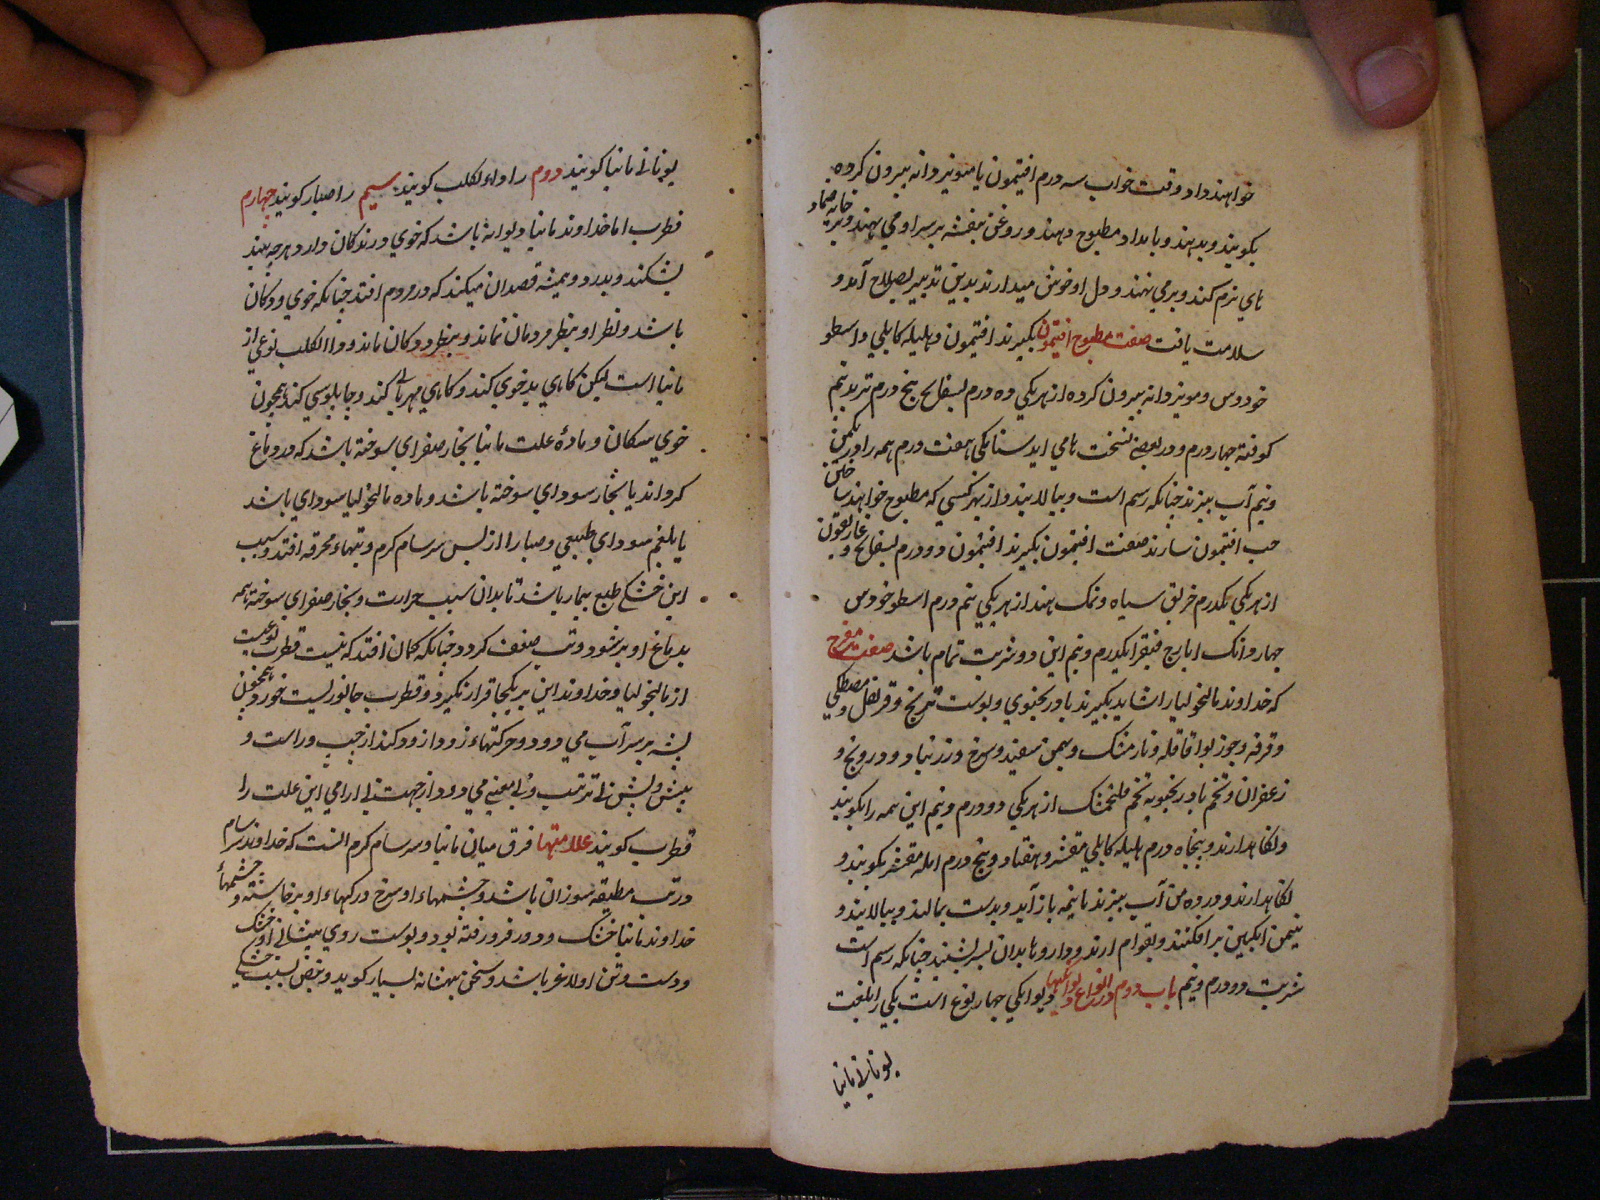 خواهند داد و وقت خواب سه درم افتیمون با مویز دانه بیرون کرده
بکوبند و بدهند و بامداد مطبوخ دهند و روغن بنفشه بر سر او می نهند و بر
نرم کند و بر می نهند و دل او خوش میدارند بدین تدبیر بصلاح آمد و
سلامت یافت صفت مطبوخ افتیمون بکیرند افتیمون و هلیله کابلی و اسطو
خودوس و مویز دانه بیرون کرده از هر یکی ده درم بسفایج پنج درم تربد نیم
کوفته چهار درم و در بعضی نسخت سنا مکی هفت درم همه را در یکمن
و نیم آب بپزند چنانکه رسم است و ببالایند و از بهر کسی که مطبوخ خواهند ساختن
حب افتیمون سازند صفت افتیمون بکیرند افتیمون دو درم بسفایج و غاریقون
از هر یکی یکدرم خربق سیاه و نمک هند از هر یکی نیم درم اسطوخودوس
چهار دانک ایارج فیقرا یکدرم و نیم این دو شربت تمام باشد صفت مفرح
که خداوند مالیخولیا را شاید بکیرند بادرنجبوی و پوست ترنج و قرنفل و مصطکی
و قرفه و جوز بوا قاقله و نارمشک و بهمن سفید و سرخ و زرنباد و درونج و
زعفران و تخم بادرنجبویه تخم فلنجمشک از هر یکی دو درم و نیم این همه را بکوبند
و نکاهدارند و پنجاه درم هلیله کابلی مقشر و هفتاد و پنج درم امله مقشر بکوبند و
نکاهدارند و در ده من آب بپزند تا نیمه باز آید و بدست بمالند و ببالایند و
نیمن انکبین برافکنند و بقوام ارند و داروها بدان بسرشند چنانکه رسم است
شربت دو درم و نیم باب دوم در انواع دیوانکیها دیوانکی چهار نوع است یکی را بلغت
یونانی مانیا
یونانی مانیا کویند دوم را داء الکلب کویند سیم را صبارا کویند چهارم
قطرب اما خداوند مانیا دیوانه باشد که خوی درندکان دارد هر چه بیند
بشکند و بدرد و همیشه قصد ان میکند که در مردم افتد چنانکه خوی ددکان
باشد و نظر او بنظر مردمان نماند و بنظر ددکان ماند و داء الکلب نوعی از
مانیا است لیکن کاهی بدخوی کند و کاهی مهربانی کند و چاپلوسی کند همچون
خوی سکان و ماده علت مانیا بخار صفرای سوخته باشد که در دماغ
کرد اید یا بخار سودای سوخته باشد و ماده مالیخولیا سودای باشد
یا بلغم سودای طبیعی و صبارا از پس سرسام کرم و تبهاء محرقه افتد و سبب
این خشکی طبع بیمار باشد تا بدان سبب حرارت و بخار صفرای سوخته همه
بدماغ او بر شود و تب ضعف کردد چنانکه کمان افتد که نیست قطرب نوعیست
از مالیخولیا و خداوند این بر یکجا قرار نکیرد و قطرب جانوریست خورد همچون
پشه بر سر آب می دود و حرکتهاء زود از زود کند از چپ و راست و
پیش و پس بی ترتیب و بی معنی می دود از جهت بی ارامی این علت را
قطرب کویند علامتها فرق میان مانیا و سرسام کرم انست که خداوند سرسام
در تب مطبقه سوزان باشد و چشمهاء او سرخ و رکهاء او برخاسته و چشمهاء
خداوند مانیا خشک و دور فرو رفته بود و پوست روی پیشانی او خشک
و دست و تن او لاغر باشد و سخن بسیار کوید و نبض بسبب خشکی